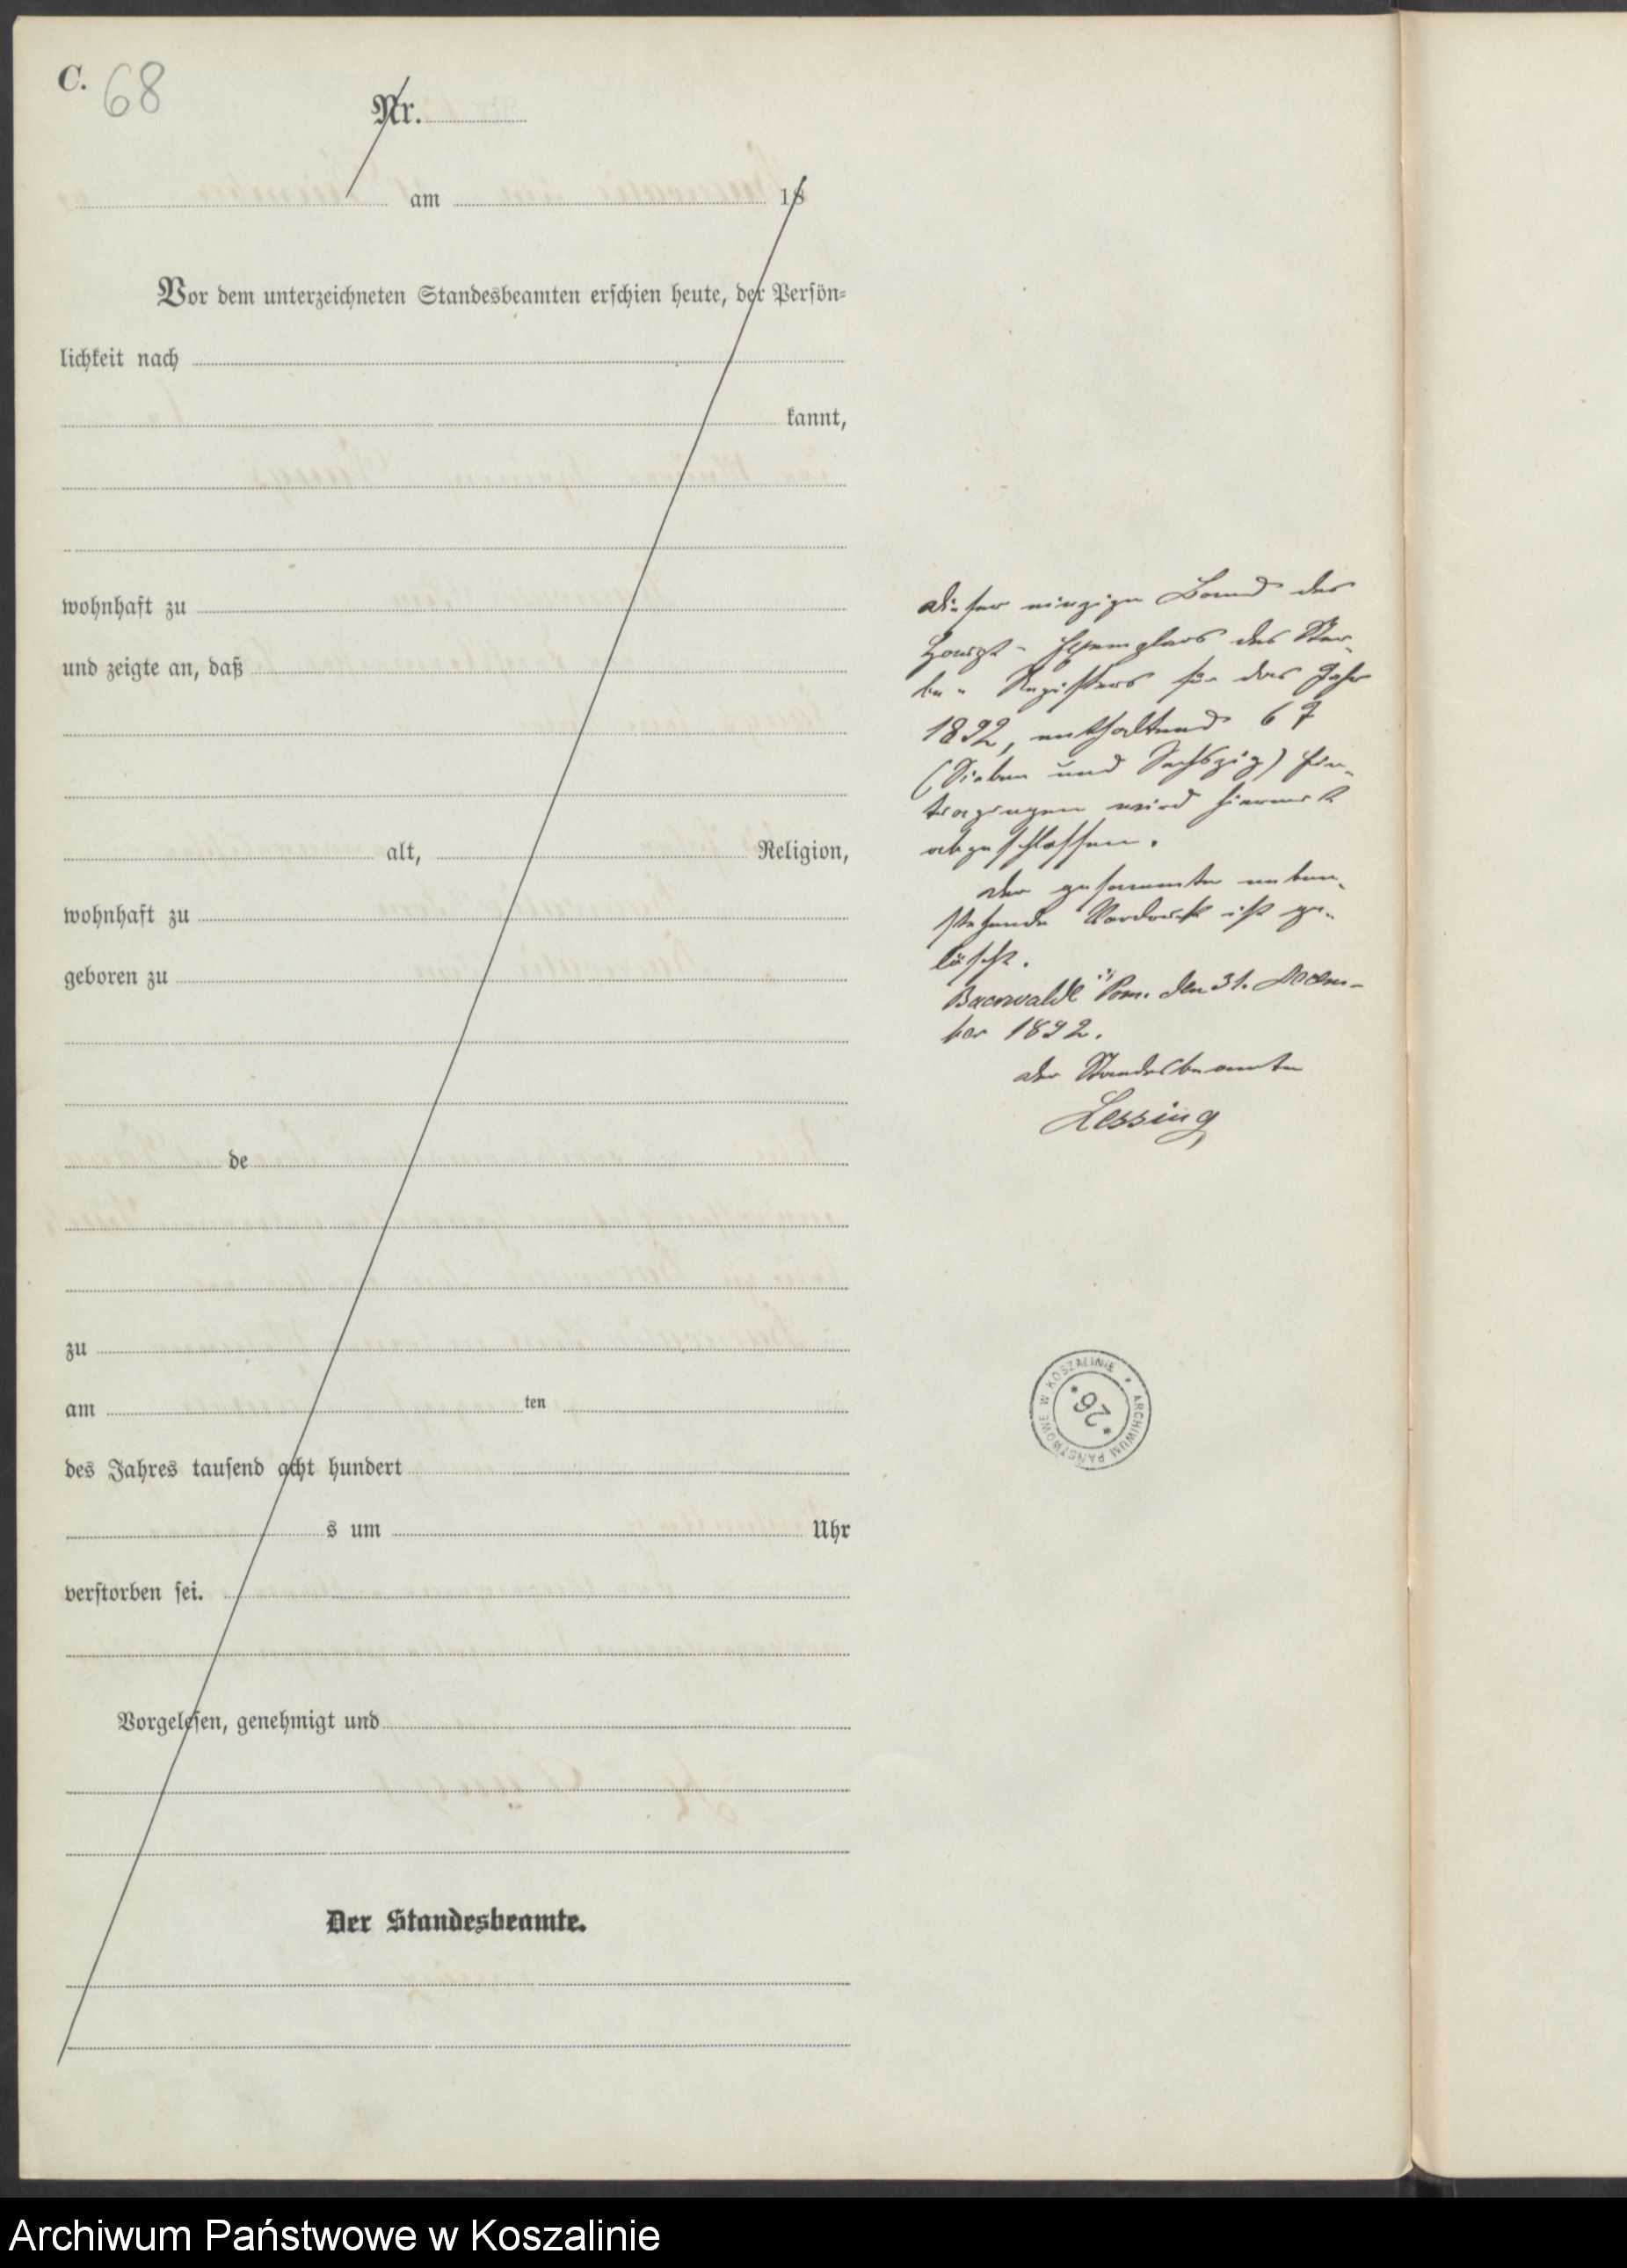 C. 68
Nr.
am 18
Vor dem unterzeichneten Standesbeamten erschien heute, der Persön=
lichkeit nach
kannt,
wohnhaft zu
und zeigte an, daß
alt, Religion,
wohnhaft zu
geboren zu
de
zu
am ten
des Jahres tausend acht hundert
s um Uhr
verstorben sei.
Vorgelesen, genehmigt und
Der Standesbeamte.
Dieser einzige Band des
Haupt- Exemplars des Ster-
be- Registers für das Jahr
1892, enthaltend 67
(Sieben und Sechszig) Ein-
tragungen wird hiermit
abgeschlossen.
Der gesammte neben-
stehende Vordruck ist ge-
löscht.
Baerwalde i/ Pom. den 31. Dezem-
ber 1892.
Der Standesbeamte
Lessing
ARCHIWUM PAŃSTWOWE W KOSZALINIE
* 26 *
Archiwum Państwowe w Koszalinie